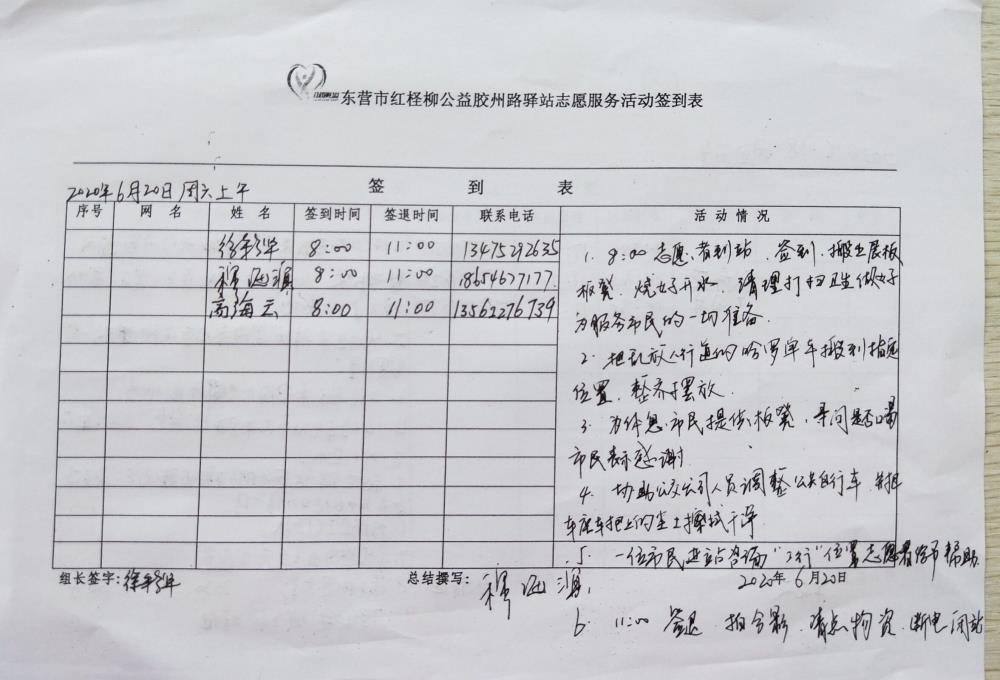 东营市红柽柳公益胶州路驿站志愿服务活动签到表
2020年6月20日 周六上午 签 到 表
序号 网 名 姓 名 签到时间 签退时间 联系电话 活 动 情 况
8:00 11:00 13475292635
8:00 11:00 18654677177
高海云 8:00 11:00 13561276739
1. 8:00 志愿者到站、签到、搬出展板
板凳、烧好开水、清理打扫卫生做好
为服务市民的一切准备.
2. 把乱放人行道的哈罗单车搬到指定
位置、整齐摆放.
3. 为休息市民提供板凳、寻问是否喝
市民表示感谢
4. 协助公交公司人员调整公共自行车 并把
车座车把上的尘土擦拭干净
5. 一位市民进站咨询"工行"位置志愿者给予帮助.
组长签字: 总结撰写: 2020年6月20日
6. 11:00 签退 拍合影、清点物资、断电闭站